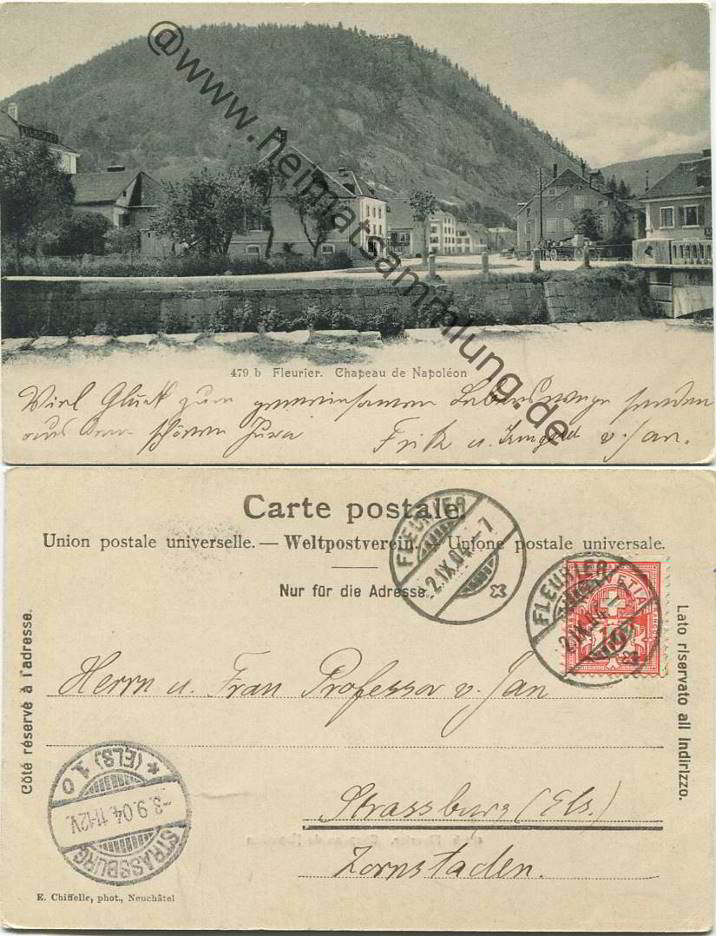 @www.heimatsammlung.de
479 b Fleurier. Chapeau de Napoléon
Viel Glück zum gemeinsamen Lebenswege senden
aus dem schönen Jura Fritz u. Irmgard v. Jan.
Carte postale.
Union postale universelle. — Weltpostverein. — Unione postale universale.
Nur für die Adresse.
FLEURIER
2.IX.04.-7
FLEURIER
2.IX.04
HELVETIA
10
Côté réservé à l'adresse.
Lato riservato all indirizzo.
Herrn u. Frau Professor v. Jan
Strassburg (Els.)
Zornstaden.
STRASSBURG
-3.9.04.11-12V.
* (ELS) 1.0
E. Chiffelle, phot., Neuchâtel